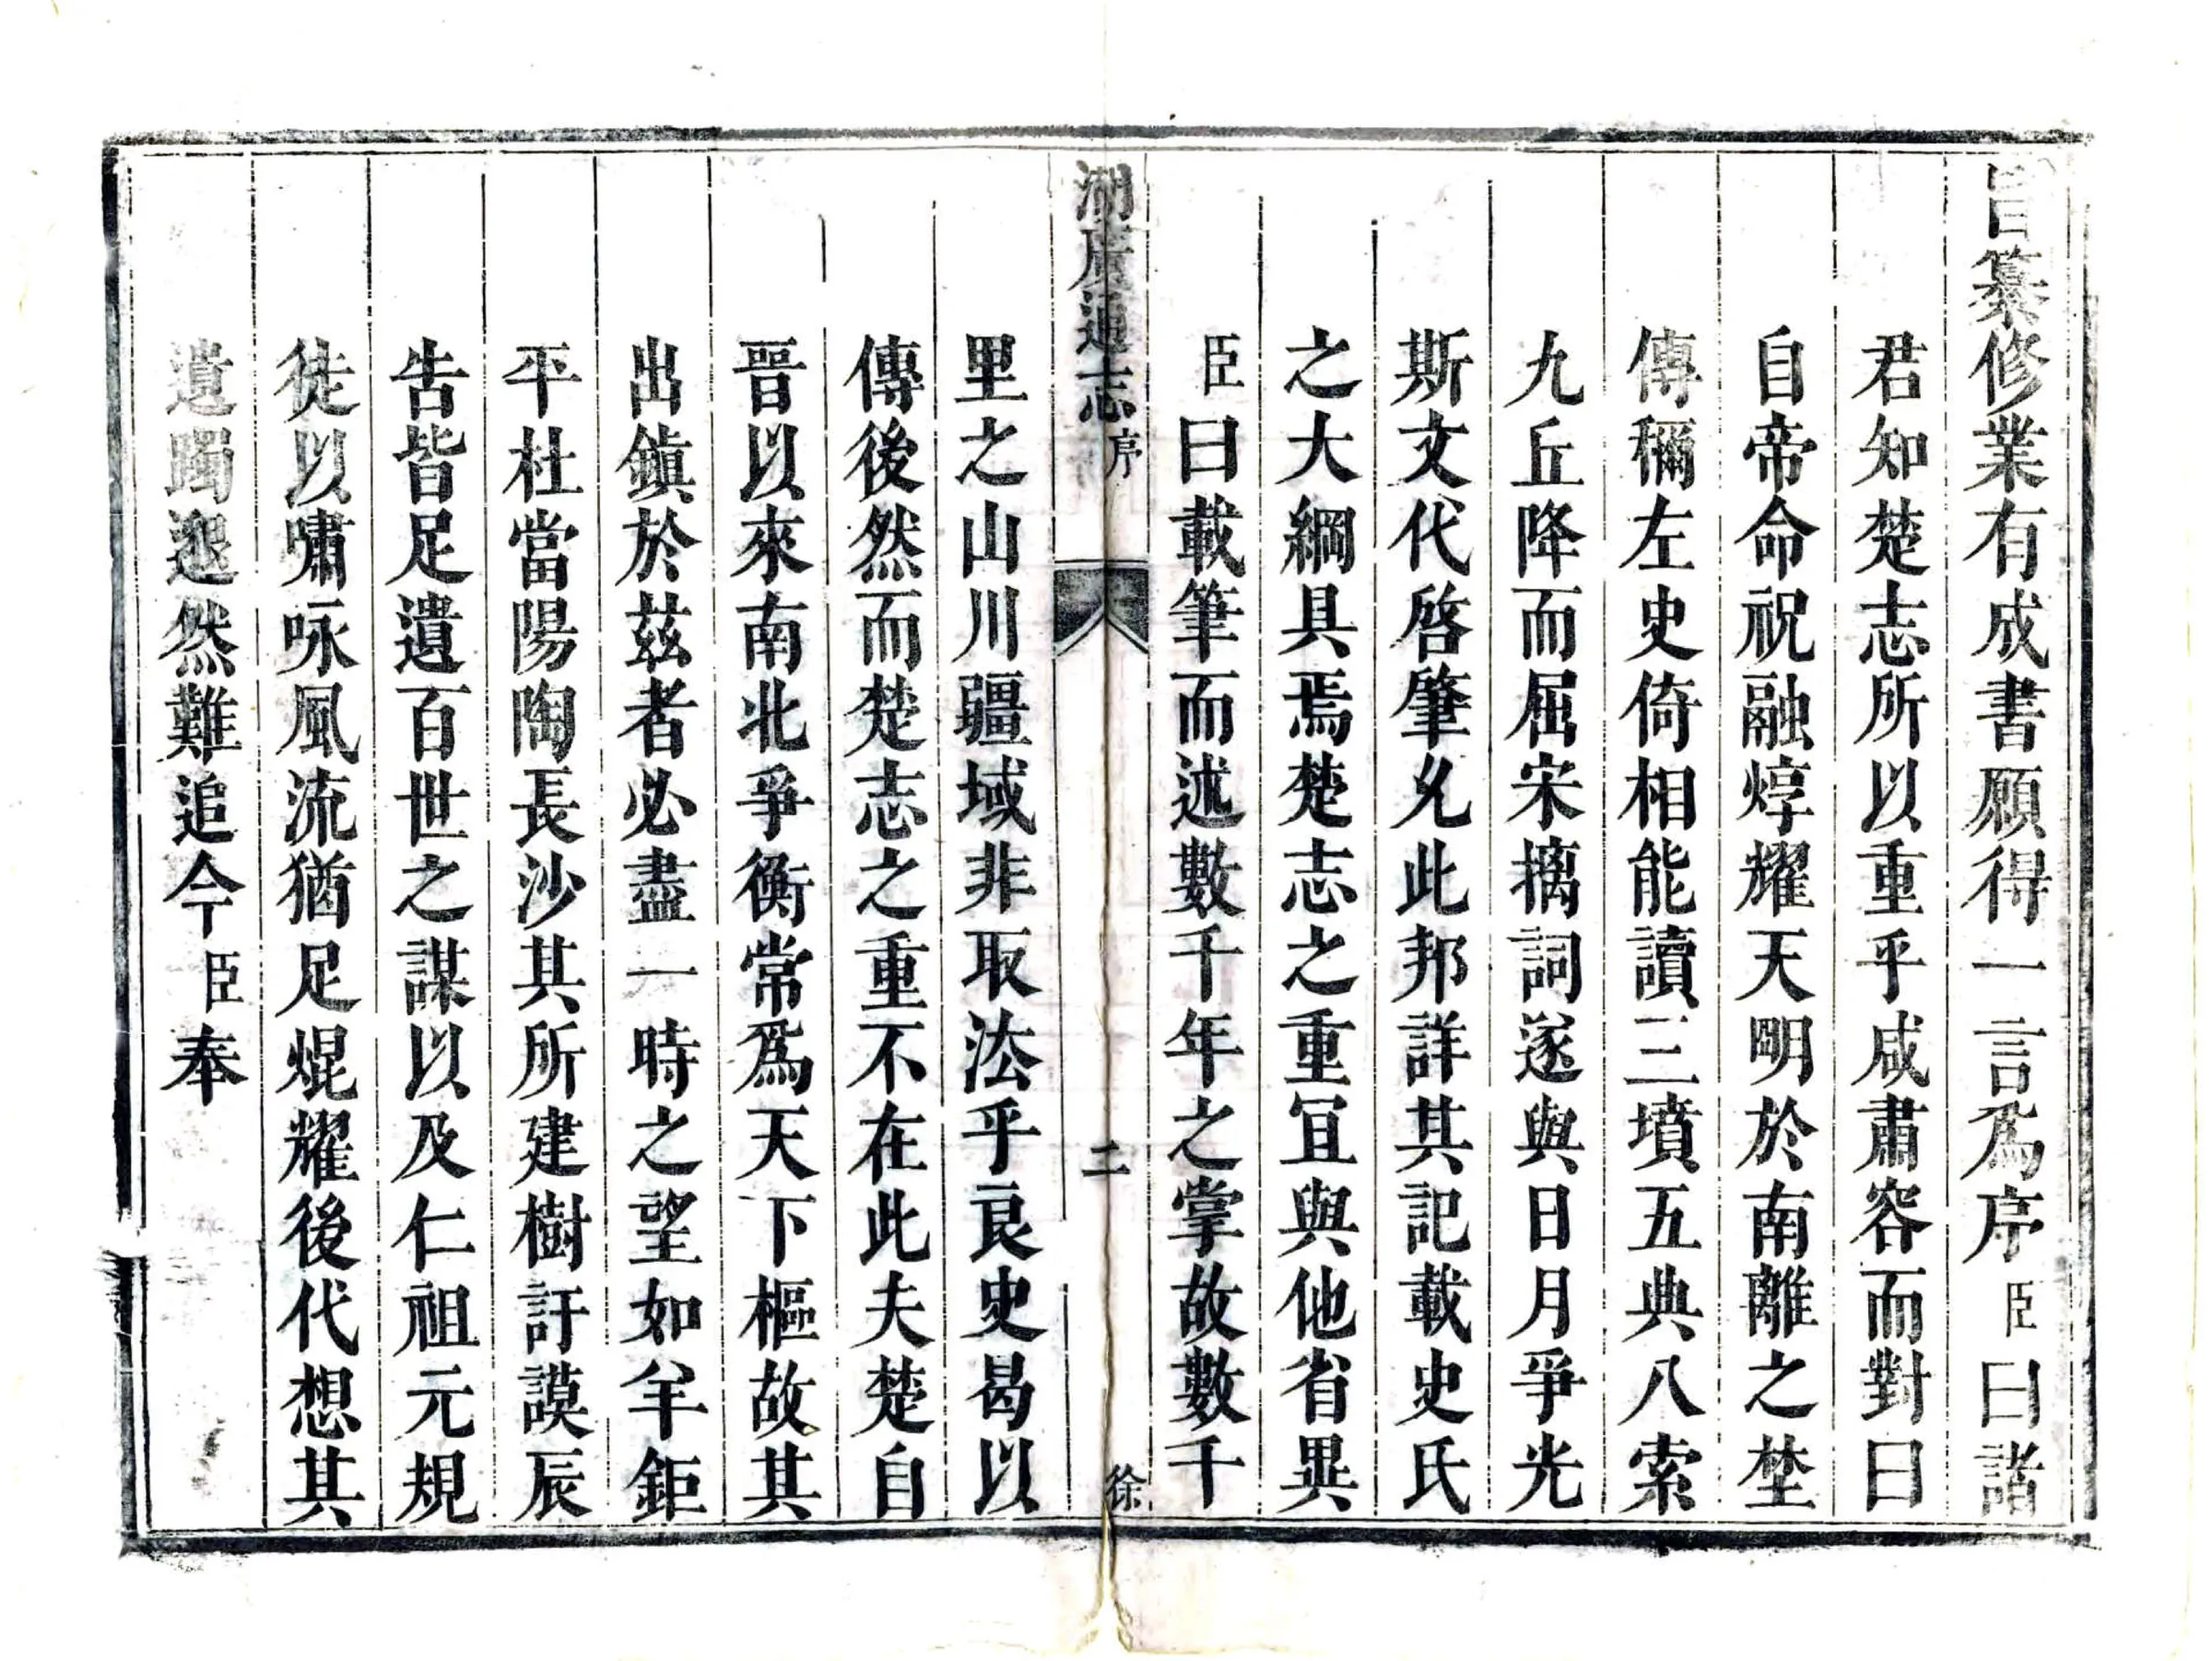 旨纂修業有成書願得一言爲序臣曰諸
君知楚志所以重乎咸肅容而對曰
自帝命祝融焞耀天明於南離之埜
傳稱左史倚相能讀三墳五典八索
九丘降而屈宋摛詞遂與日月爭光
斯文代啓肇允此邦詳其記載史氏
之大綱具焉楚志之重冝與他省異
臣曰載筆而述數千年之掌故數千
湖廣通志 序 二 徐
里之山川疆域非取法乎良史曷以
傳後然而楚志之重不在此夫楚自
晉以來南北爭衡常爲天下樞故其
出鎭於兹者必盡一時之望如羊鉅
平杜當陽陶長沙其所建樹訏謨辰
告皆足遺百世之謀以及仁祖元規
徒以嘯咏風流猶足焜耀後代想其
遺躅邈然難追今臣奉